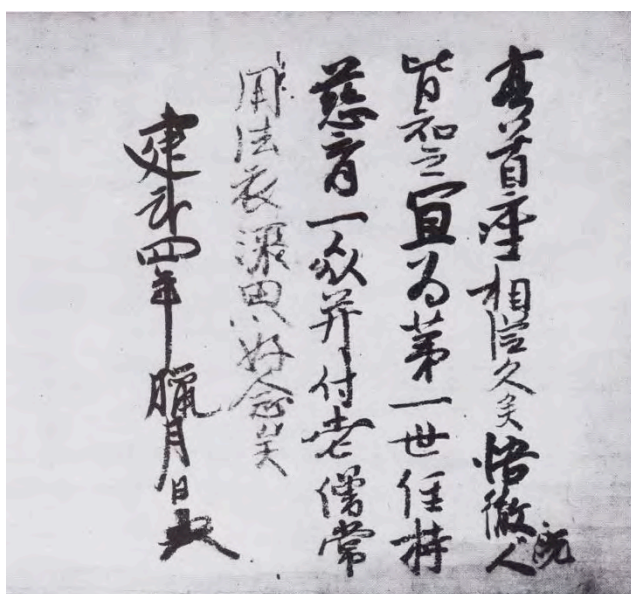 亨首座相從久矣悟徹人
既
皆知之宜為第一世住持
慈育一衆并付老僧常
用法衣深思好念矣
建武四年臘月日